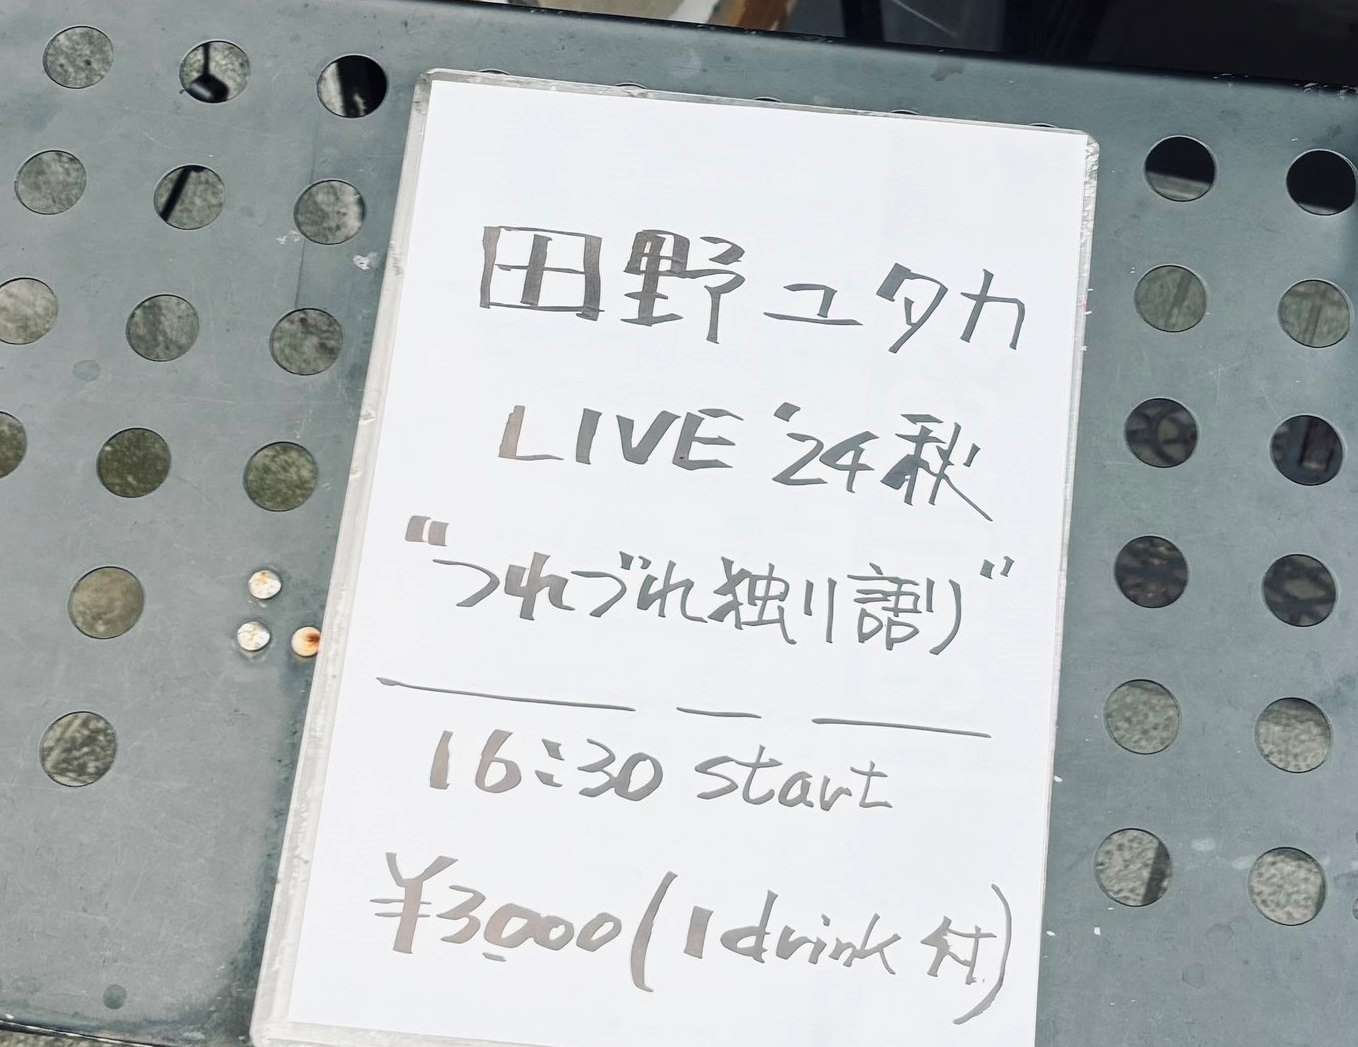 田野ユタカ
LIVE '24秋
"つれづれ独り語り"
16:30 start
¥3000(1drink付)